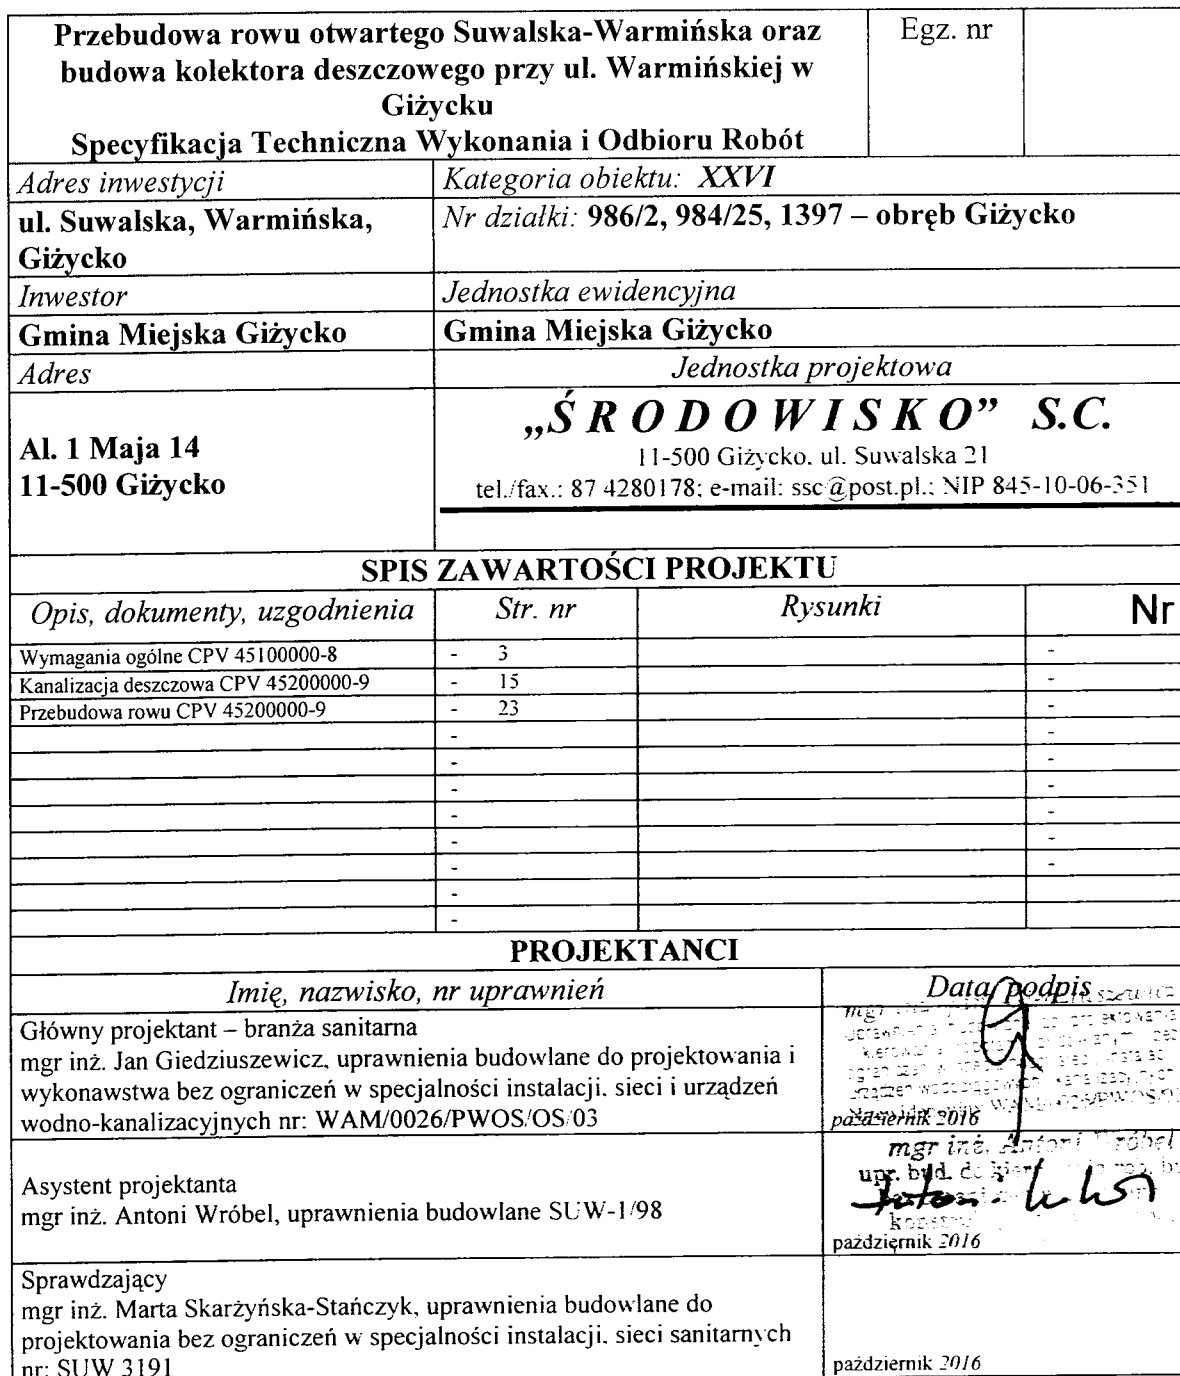 Przebudowa rowu otwartego Suwalska-Warmińska oraz
budowa kolektora deszczowego przy ul. Warmińskiej w
Giżycku
Specyfikacja Techniczna Wykonania i Odbioru Robót
Egz. nr
Adres inwestycji
Kategoria obiektu: XXVI
ul. Suwalska, Warmińska,
Giżycko
Nr działki: 986/2, 984/25, 1397 – obręb Giżycko
Inwestor
Jednostka ewidencyjna
Gmina Miejska Giżycko
Gmina Miejska Giżycko
Adres
Jednostka projektowa
Al. 1 Maja 14
11-500 Giżycko
„ŚRODOWISKO” S.C.
11-500 Giżycko, ul. Suwalska 21
tel./fax.: 87 4280178; e-mail: ssc@post.pl.; NIP 845-10-06-351
SPIS ZAWARTOŚCI PROJEKTU
Opis, dokumenty, uzgodnienia Str. nr Rysunki Nr
Wymagania ogólne CPV 45100000-8 - 3 -
Kanalizacja deszczowa CPV 45200000-9 - 15 -
Przebudowa rowu CPV 45200000-9 - 23 -
- -
- -
- -
- -
- -
- -
-
-
PROJEKTANCI
Imię, nazwisko, nr uprawnień Data, podpis
Główny projektant – branża sanitarna
mgr inż. Jan Giedziuszewicz, uprawnienia budowlane do projektowania i
wykonawstwa bez ograniczeń w specjalności instalacji, sieci i urządzeń
wodno-kanalizacyjnych nr: WAM/0026/PWOS/OS/03
październik 2016
Asystent projektanta
mgr inż. Antoni Wróbel, uprawnienia budowlane SUW-1/98
mgr inż. Antoni Wróbel
upr. bud.
październik 2016
Sprawdzający
mgr inż. Marta Skarżyńska-Stańczyk, uprawnienia budowlane do
projektowania bez ograniczeń w specjalności instalacji, sieci sanitarnych
nr: SUW 3191
październik 2016